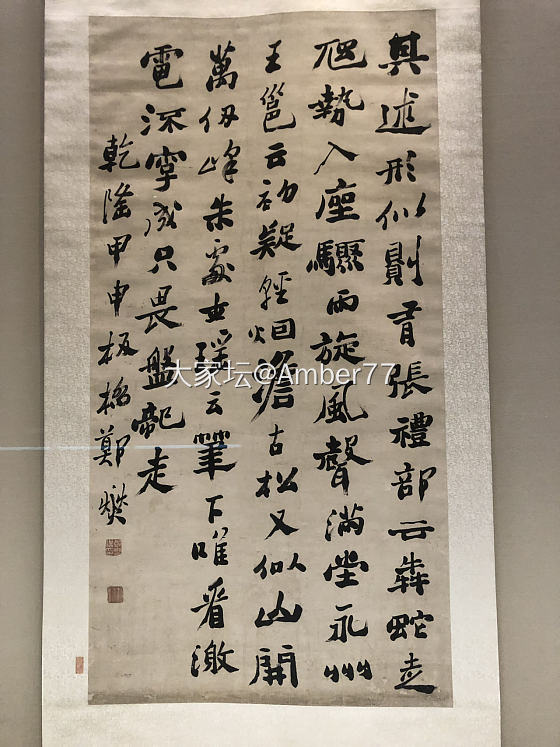 其述形似則有張禮部云犇蛇走
虺勢入座驟雨旋風聲滿堂永州
王邕云初疑輕烟澹古松又似山開
萬仞峰朱處士瑤云筆下唯看激
電流字成只畏盤龍走
乾隆甲申板橋鄭燮
大家坛@Amber77